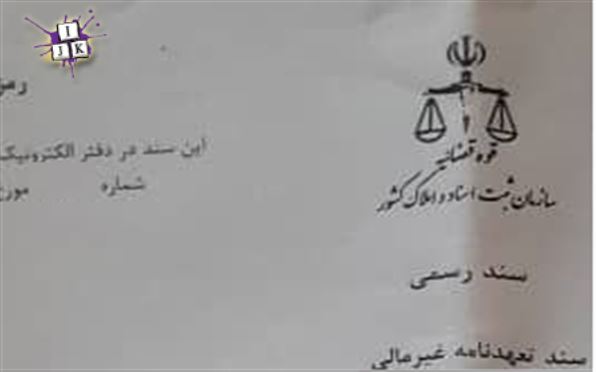 I
J K
قوه قضائیه
سازمان ثبت اسناد و املاک کشور
رمز
این سند در دفتر الکترونیک
شماره مورخ
سند رسمی
سند تعهدنامه غیرمالی